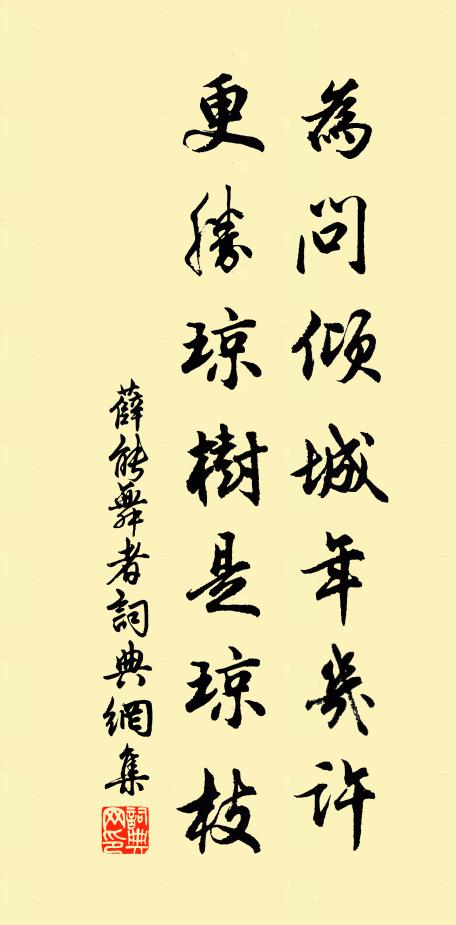 為問傾城年幾許
更勝琼樹是琼枝
薛能舞者詞典網集
詞典
网印